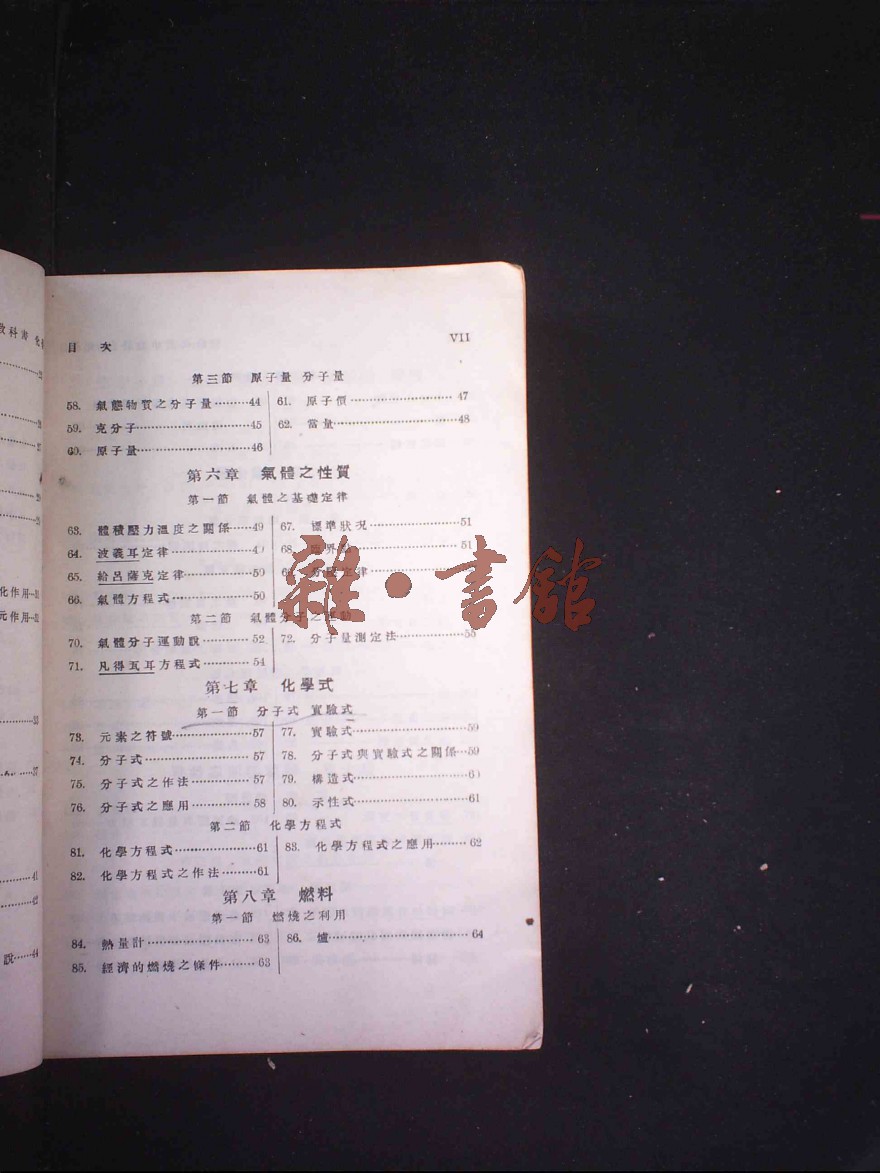 目 次 VII
第三節 原子量 分子量
58. 氣態物質之分子量………44
59. 克分子………45
60. 原子量………46
61. 原子價………47
62. 當量………48
第六章 氣體之性質
第一節 氣體之基礎定律
63. 體積壓力溫度之關係……49
64. 波義耳定律………4
65. 給呂薩克定律………50
66. 氣體方程式………50
67. 標準狀況………51
68. 51
定律
第二節 氣體分子之
70. 氣體分子運動說………52
71. 凡得瓦耳方程式………54
72. 分子量測定法………55
第七章 化學式
第一節 分子式 實驗式
73. 元素之符號………57
74. 分子式………57
75. 分子式之作法………57
76. 分子式之應用………58
77. 實驗式………59
78. 分子式與實驗式之關係…59
79. 構造式………60
80. 示性式………61
第二節 化學方程式
81. 化學方程式………61
82. 化學方程式之作法………61
83. 化學方程式之應用………62
第八章 燃料
第一節 燃燒之利用
84. 熱量計………63
85. 經濟的燃燒之條件………63
86. 爐………64
教科書 化
化作用…31
元作用…32
33
37
41
42
說……44
雜·書館